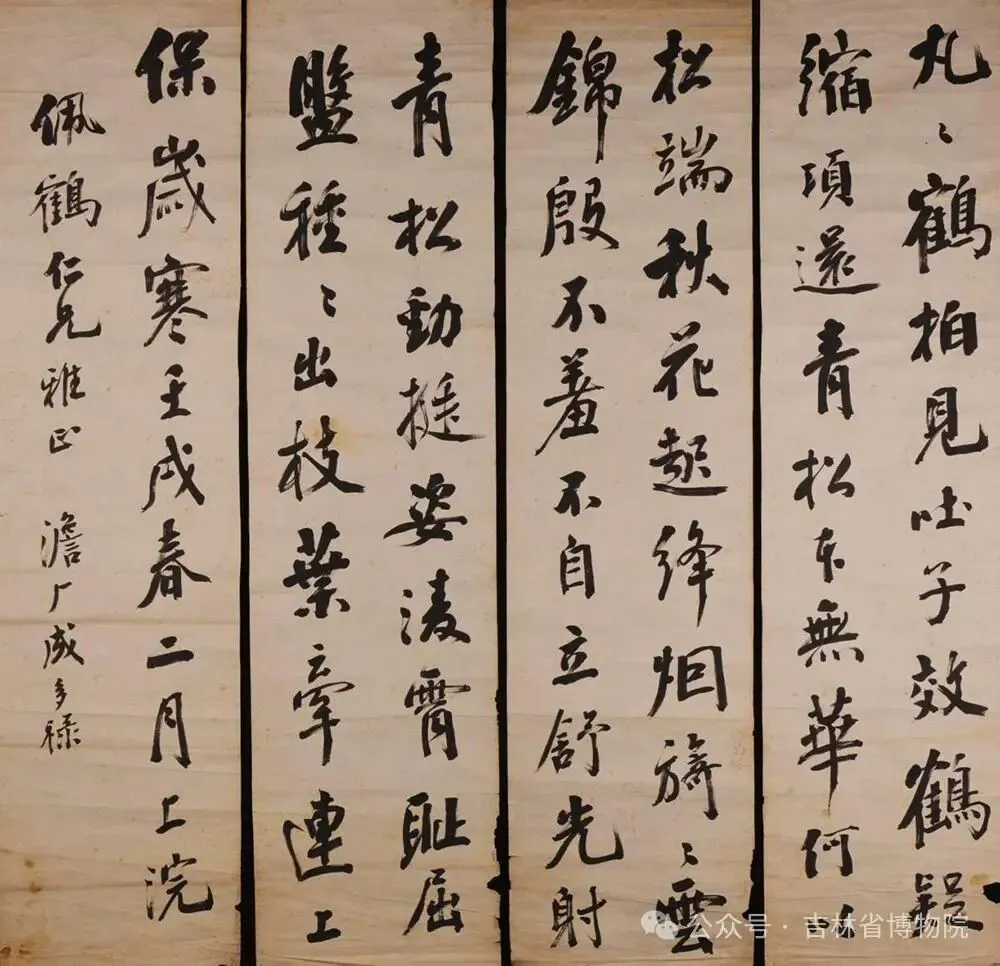 丸〻鶴拍見吐子效鶴疑
縮項還青松本無華何
松端秋花起絳烟旖〻雲
錦殷不羞不自立舒光射
青松勁挺姿凌霄耻屈
盤種〻出枝葉牽連上
保歲寒壬戌春二月上浣
佩鶴仁兄雅正 澹厂成多祿
公众号·吉林省博物院